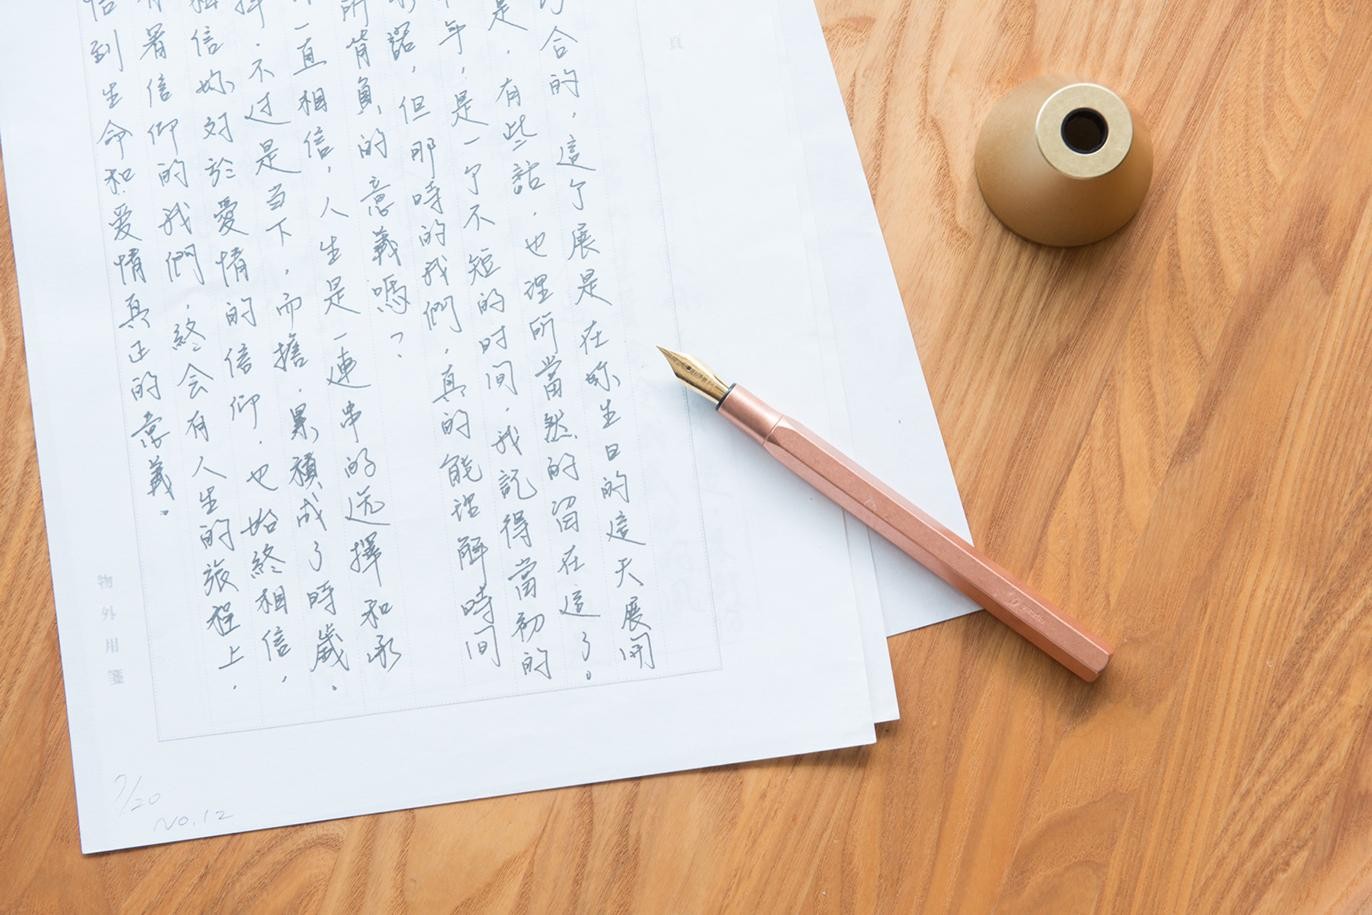 合的，這个展是在妳生日的這天展開
是，有些話，也理所當然的留在這了。
年，是一个不短的时间，我記得當初的
諾，但那時的我們，真的能理解時間
所背負的意義嗎？
一直相信，人生是一連串的选擇和承
不过是当下，而擔，累積成了時歲，
相信妳对於愛情的信仰，也始終相信，
有著信仰的我們，終会有人生的旅程上，
到生命和爱情真正的意義。
頁
物外用箋
7/20
No.12